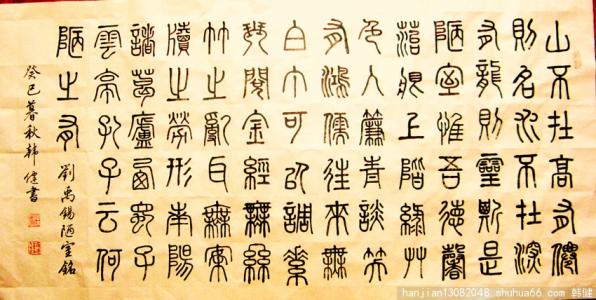 山不在高有僊
則名水不在深
有龍則靈斯是
陋室惟吾德馨
苔痕上階綠艸
色入簾青談笑
有鴻儒往來無
白丁可以調素
琴閱金經無絲
竹之亂耳無案
牘之勞形南陽
諸葛廬西蜀子
雲亭孔子云何
陋之有
劉禹錫陋室銘
癸巳暮秋韓健書
hanjian13082048. shuhua66. com 韩健